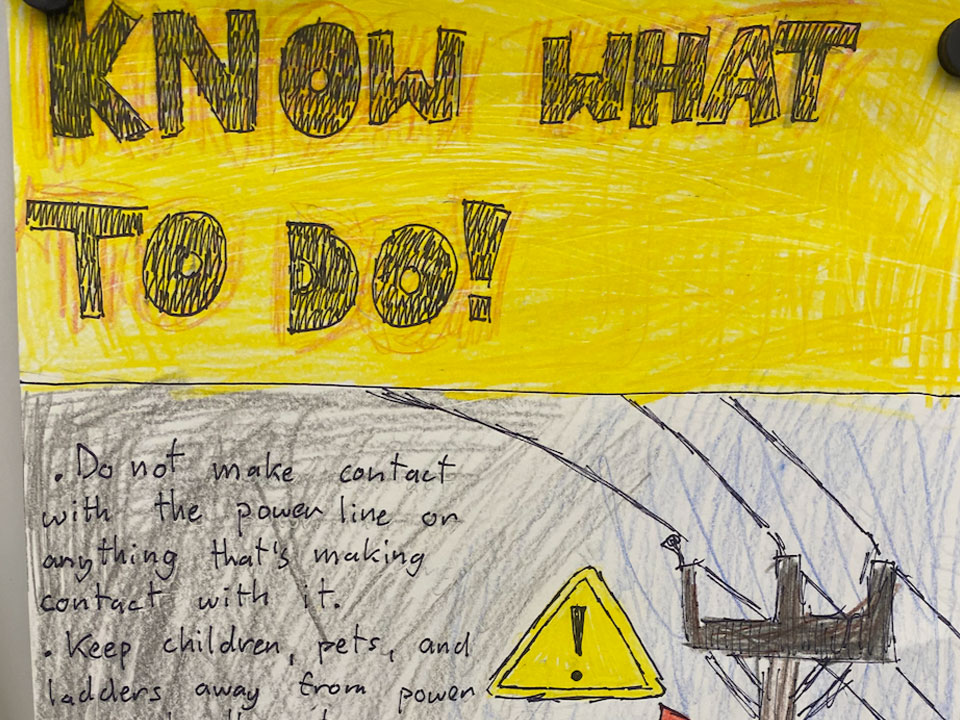 KNOW WHAT
TO DO!
. Do not make contact
with the power line or
anything that's making
contact with it.
. Keep children, pets, and
ladders away from power
!